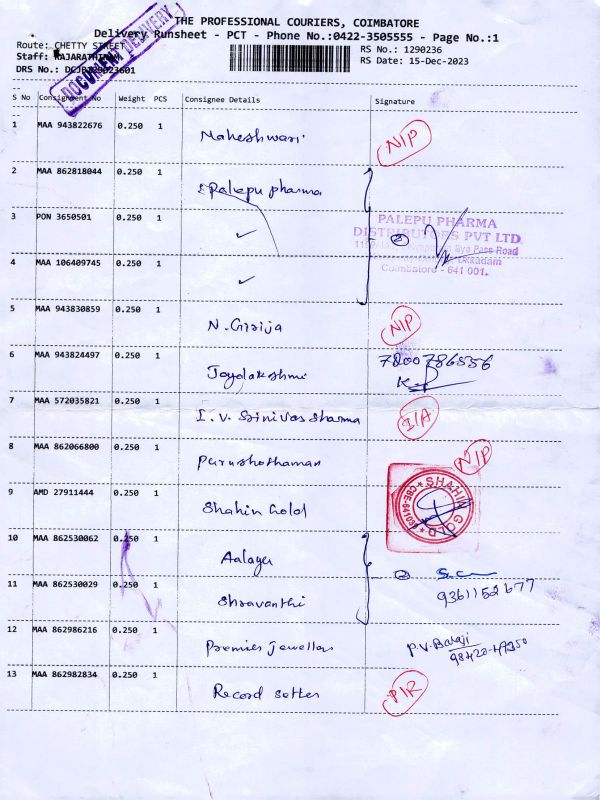 THE PROFESSIONAL COURIERS, COIMBATORE
Delivery Runsheet - PCT - Phone No.:0422-3505555 - Page No.:1
Route: CHETTY STREET
RS No.: 1290236
Staff: RAJARATHINAM
RS Date: 15-Dec-2023
DRS No.:
DOCUMENT DELIVERY
S No Consignment No Weight PCS Consignee Details Signature
1 MAA 943822676 0.250 1 Maheshwari N/P
2 MAA 862818044 0.250 1 Palepu pharma
3 PON 3650501 0.250 1 ✓
PALEPU PHARMA
DISTRIBUTORS PVT LTD
Bye Pass Road
Ukkadam
Coimbatore - 641 001.
4 MAA 106409745 0.250 1 ✓
5 MAA 943830859 0.250 1 N. Girija N/P
6 MAA 943824497 0.250 1 Jayalakshmi 7200786556
7 MAA 572035821 0.250 1 I. V. Srinivas sharma I/A
8 MAA 862066800 0.250 1 Purushothaman N/P
9 AMD 27911444 0.250 1 Shahin Gold
SHAHIN GOLD
10 MAA 862530062 0.250 1 Aalaya
11 MAA 862530029 0.250 1 Shravanthi 9361152677
12 MAA 862986216 0.250 1 Premier Jewellers P.V. Balaji
13 MAA 862982834 0.250 1 Record setter P/R